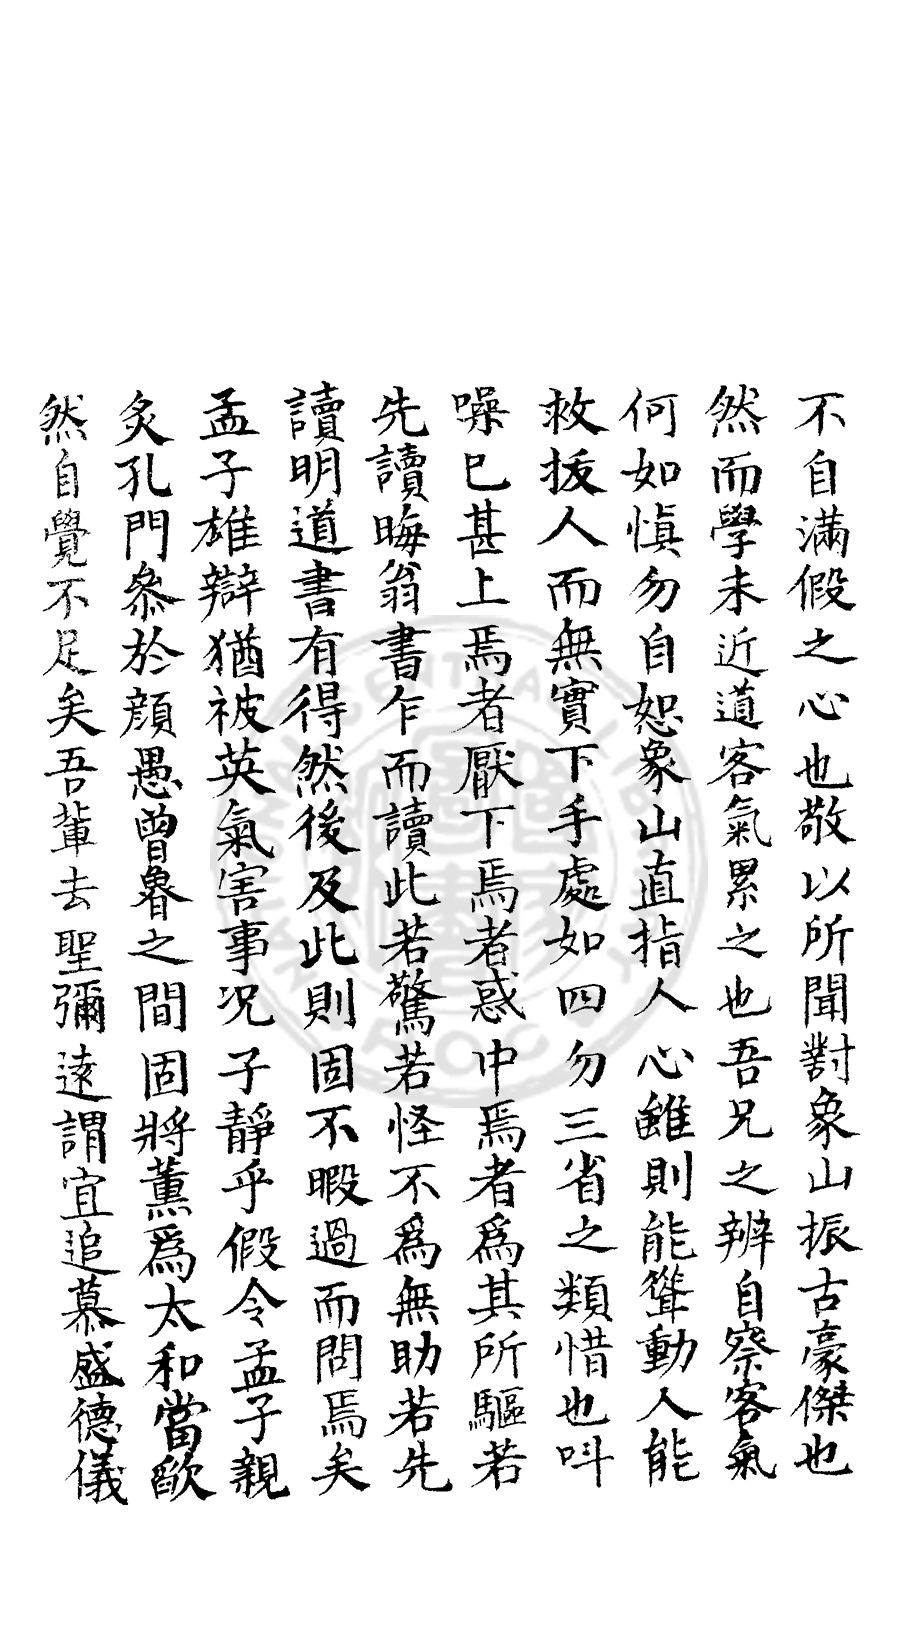 不自滿假之心也敬以所聞對象山振古豪傑也
然而學未近道客氣累之也吾兄之辨自察客氣
何如慎勿自恕象山直指人心雖則能聳動人能
救拔人而無實下手處如四勿三省之類惜也叫
噪已甚上焉者厭下焉者惑中焉者為其所驅若
先讀晦翁書乍而讀此若驚若怪不為無助若先
讀明道書有得然後及此則固不暇過而問焉矣
孟子雄辯猶被英氣害事况子靜乎假令孟子親
炙孔門參於顔愚曾魯之間固將薰為太和當歛
然自覺不足矣吾輩去聖彌逺謂宜追慕盛德儀